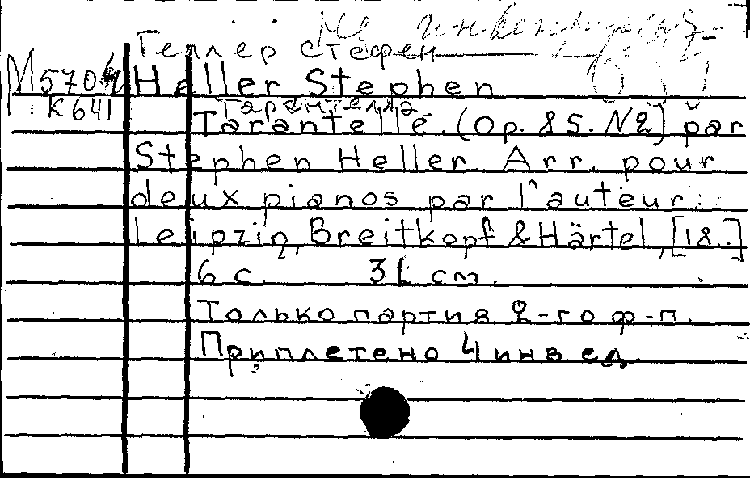 № инвентарн.
Геллер Стефен
М5704 Heller Stephen
К641 Тарантелла
Tarantelle. (Op. 85. N2) par
Stephen Heller Arr. pour
deux pianos par l'auteur.
Leipzig, Breitkopf & Härtel, [18..]
6 с. 31 см.
Только партия 2-го ф-п.
Приплетено 4 инв. ед.